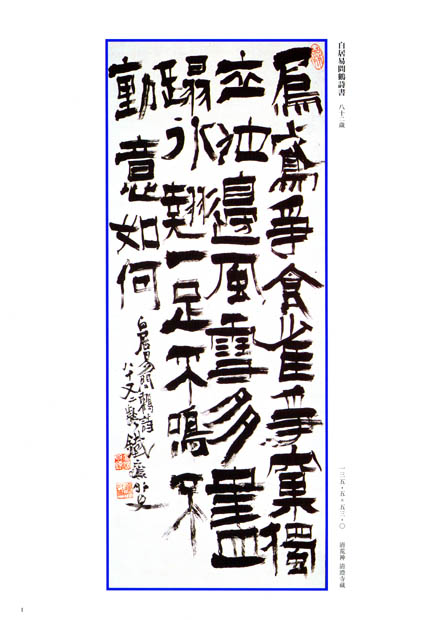 白居易問鶴詩書 八十二歳
烏鳶爭食雀爭窠獨
立池邊風雪多盡
蹋氷翹一足不鳴不
動意如何
白居易問鶴詩
八十又二叟 鐵齋外史
一三五・五×五三・〇 清荒神 清澄寺蔵
1